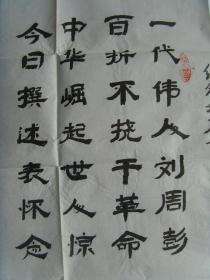 一代伟人刘周彭
百折不挠干革命
中华崛起世人惊
今日撰述表怀念